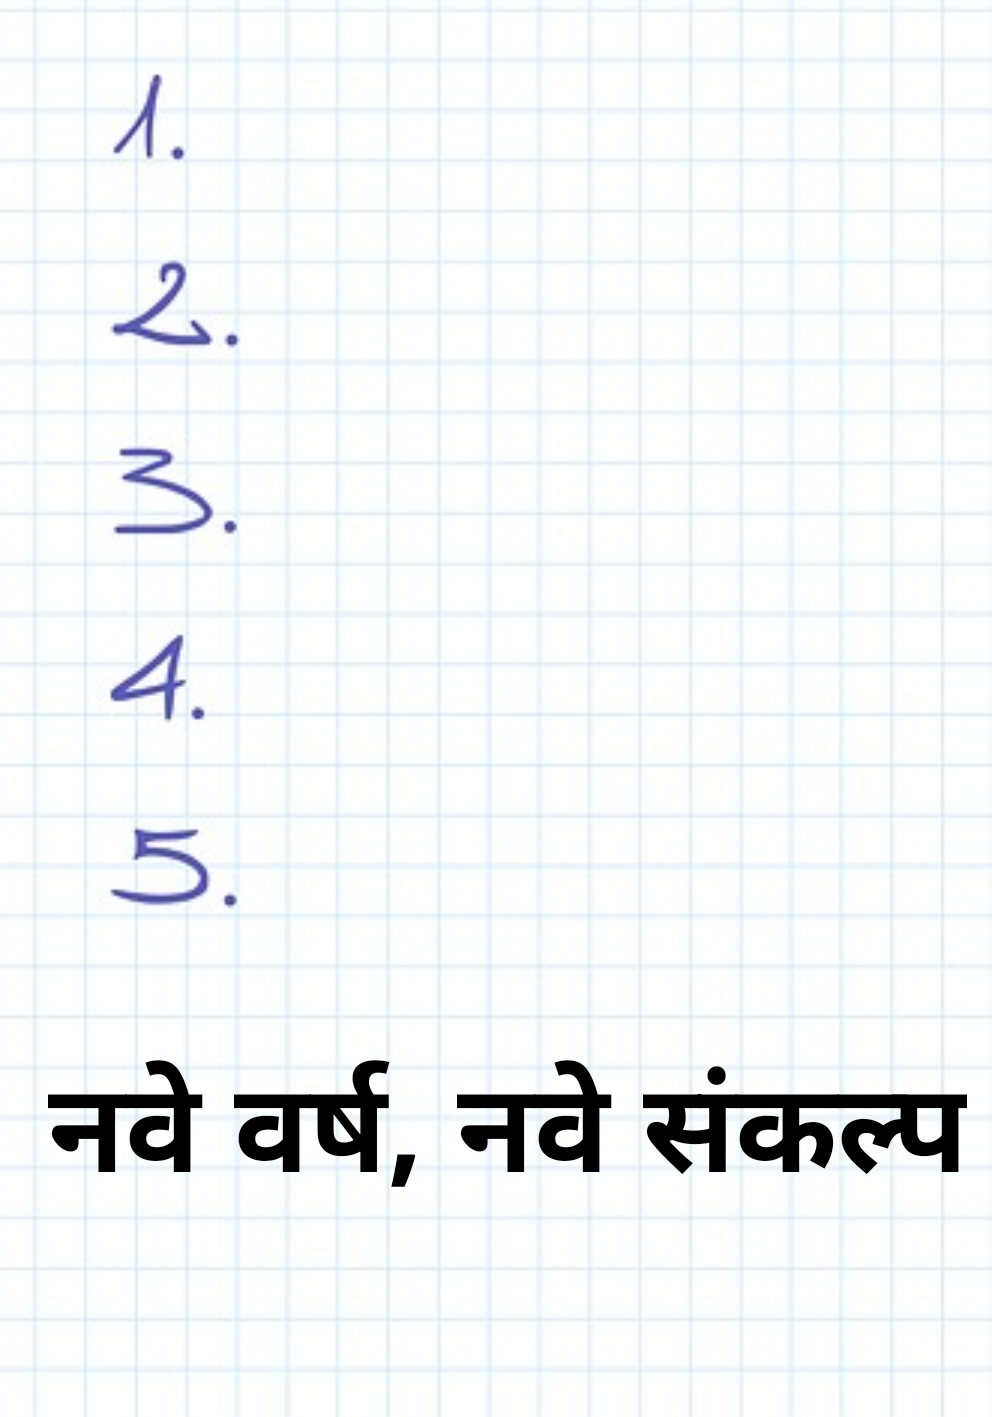 1.
2.
3.
4.
5.
नवे वर्ष, नवे संकल्प